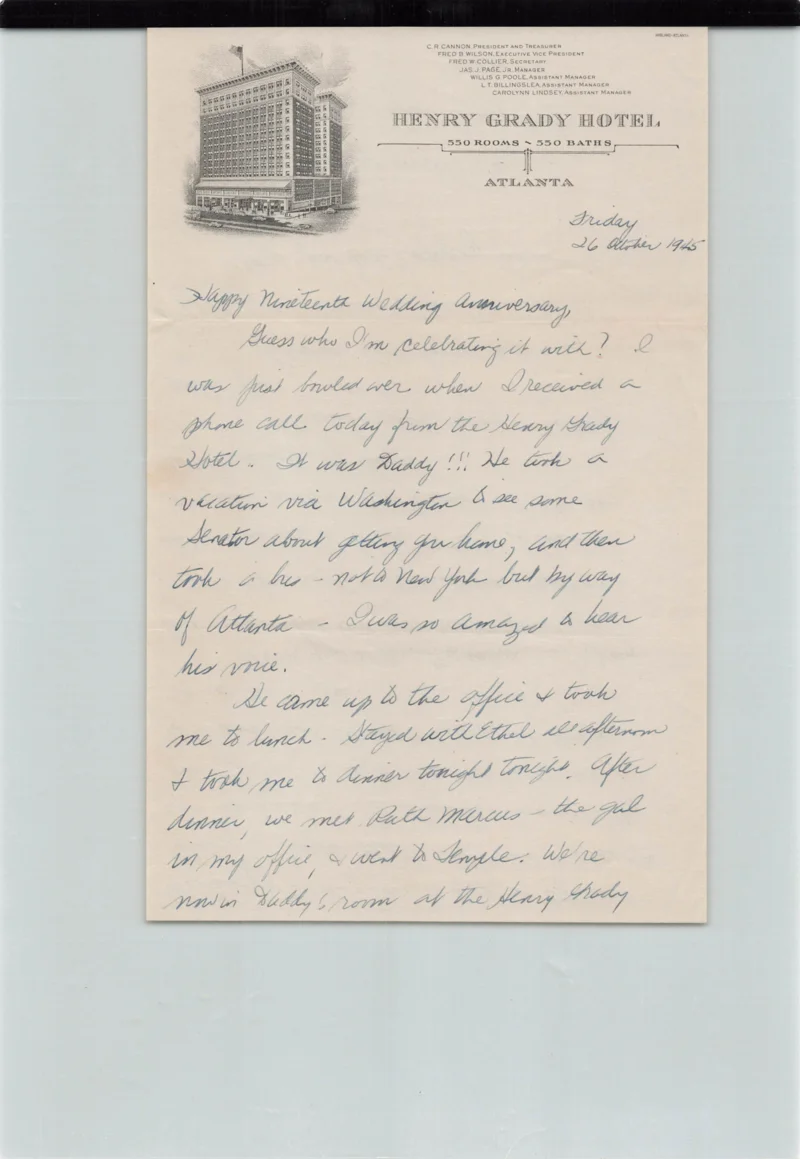 C. R. CANNON, PRESIDENT AND TREASURER
FRED B. WILSON, EXECUTIVE VICE PRESIDENT
FRED W. COLLIER, SECRETARY
JAS. J. PAGE, JR. MANAGER
WILLIS G. POOLE, ASSISTANT MANAGER
L. T. BILLINGSLEA, ASSISTANT MANAGER
CAROLYNN LINDSEY, ASSISTANT MANAGER
HENRY GRADY HOTEL
550 ROOMS ~ 550 BATHS
ATLANTA
Friday
26 October 1945
Happy Nineteenth Wedding Anniversary,
Guess who I'm celebrating it with? I
was just bowled over when I received a
phone call today from the Henry Grady
Hotel. It was Daddy!!! He took a
vacation via Washington to see some
Senator about getting you home, and then
took a bus - not to New York but by way
of Atlanta - I was so amazed to hear
his voice.
He came up to the office & took
me to lunch - Stayed with Ethel all afternoon
& took me to dinner tonight tonight. After
dinner, we met Ruth Marcus - the gal
in my office, & went to Temple. We're
now in Daddy's room at the Henry Grady